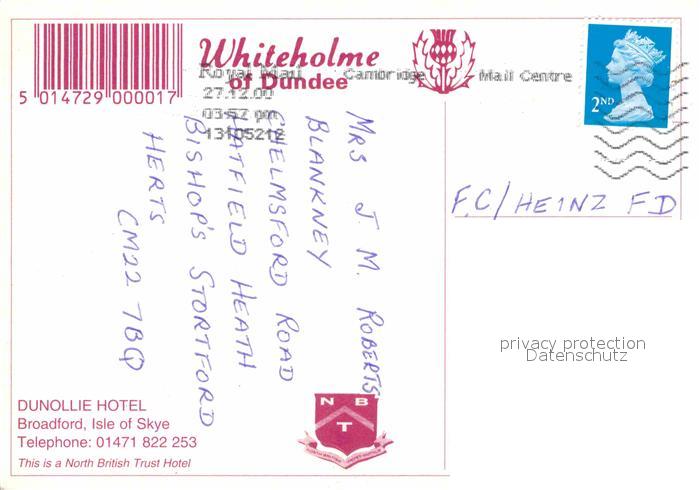 5 014729 000017
Whiteholme
of Dundee
Royal Mail Cambridge Mail Centre
27.12.00
03:52 pm
13105212
2ND
F.C/HEINZ FD
MRS J. M. ROBERTS
BLANKNEY
CHELMSFORD ROAD
HATFIELD HEATH
BISHOP'S STORTFORD
HERTS
CM22 7BQ
privacy protection
Datenschutz
DUNOLLIE HOTEL
Broadford, Isle of Skye
Telephone: 01471 822 253
This is a North British Trust Hotel
N B
T